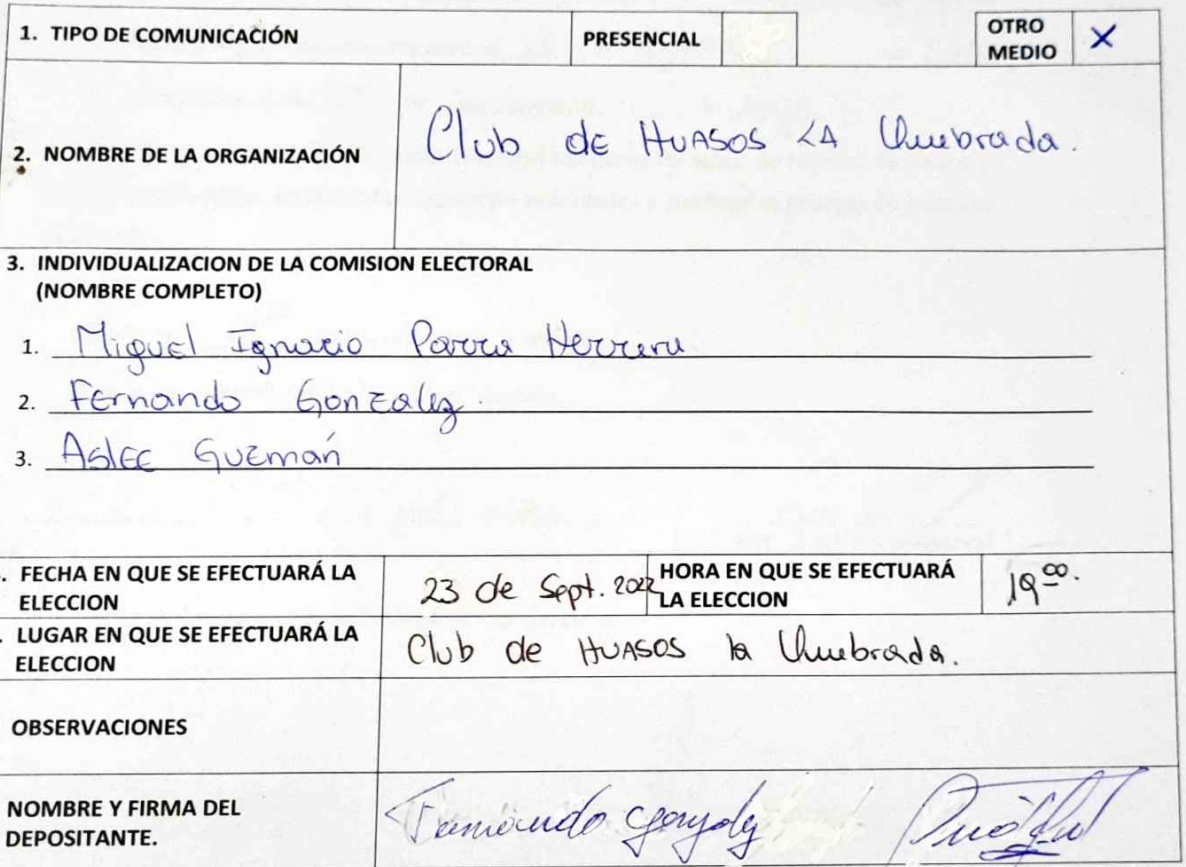 1. TIPO DE COMUNICACIÓN PRESENCIAL OTRO MEDIO X
2. NOMBRE DE LA ORGANIZACIÓN Club de HUASOS LA Quebrada.
3. INDIVIDUALIZACION DE LA COMISION ELECTORAL
(NOMBRE COMPLETO)
1. Miguel Ignacio Parra Herrera
2. Fernando Gonzalez
3. Aslee Guzmán
. FECHA EN QUE SE EFECTUARÁ LA ELECCION 23 de Sept. 2022 HORA EN QUE SE EFECTUARÁ LA ELECCION 19 00.
. LUGAR EN QUE SE EFECTUARÁ LA ELECCION Club de HUASOS la Quebrada.
OBSERVACIONES
NOMBRE Y FIRMA DEL DEPOSITANTE. Fernando Gonzalez